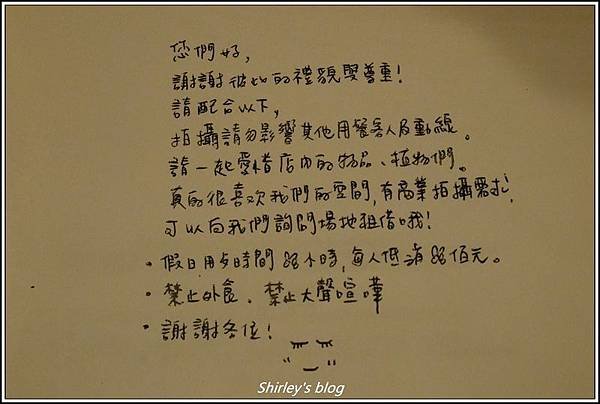 您們好，
謝謝彼此的禮貌與尊重！
請配合以下，
拍攝請勿影響其他用餐客人及動線。
請一起愛惜店內的物品、植物們。
真的很喜欢我們的空間，有商業拍攝需求，
可以向我們詢問場地租借哦！
・假日用餐時間 小時，每人低消 佰元。
・禁止外食．禁止大聲喧嘩
・謝謝各位！
Shirley's blog